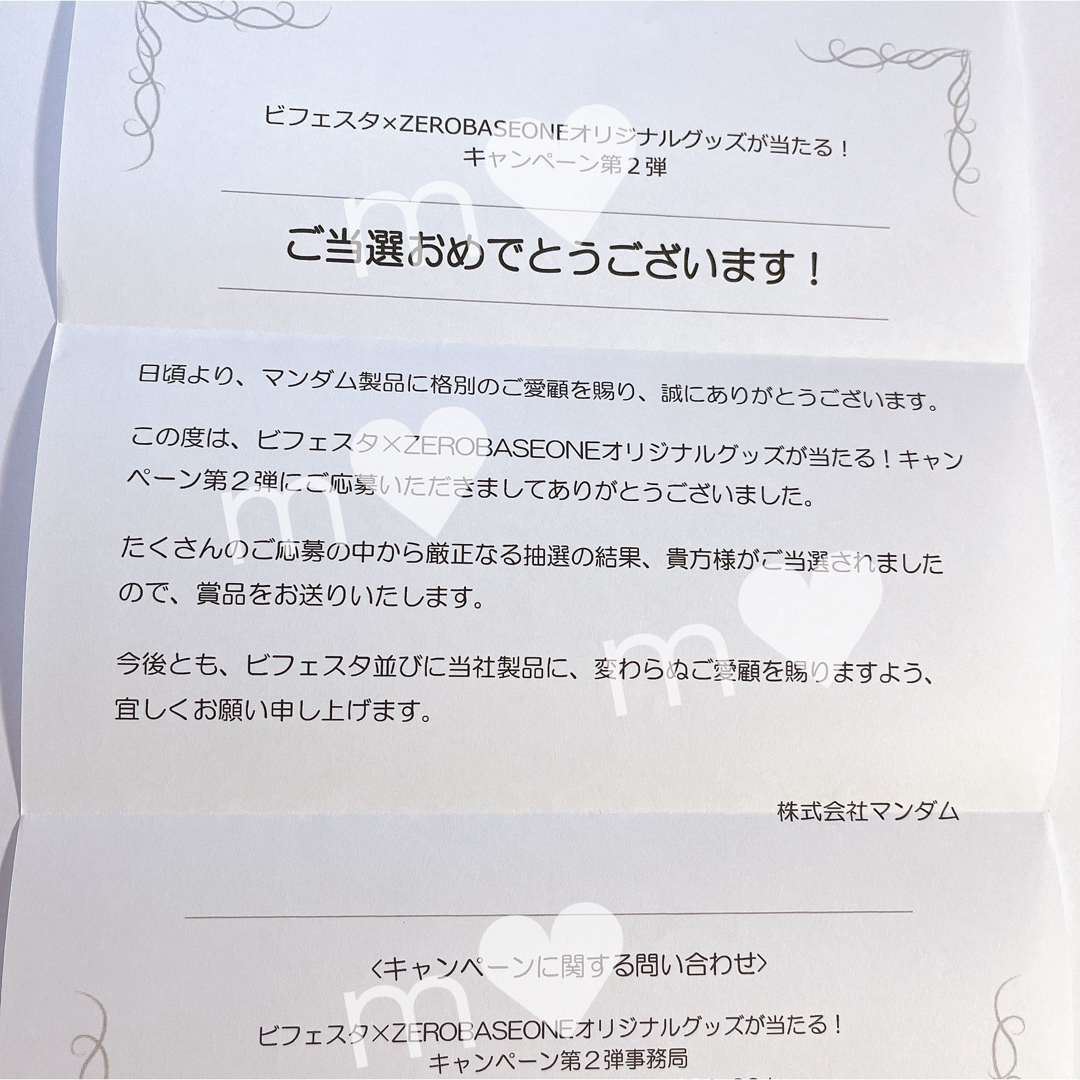 ビフェスタ×ZEROBASEONEオリジナルグッズが当たる！
キャンペーン第２弾
ご当選おめでとうございます！
日頃より、マンダム製品に格別のご愛顧を賜り、誠にありがとうございます。
この度は、ビフェスタ×ZEROBASEONEオリジナルグッズが当たる！キャン
ペーン第２弾にご応募いただきましてありがとうございました。
たくさんのご応募の中から厳正なる抽選の結果、貴方様がご当選されました
ので、賞品をお送りいたします。
今後とも、ビフェスタ並びに当社製品に、変わらぬご愛顧を賜りますよう、
宜しくお願い申し上げます。
株式会社マンダム
〈キャンペーンに関する問い合わせ〉
ビフェスタ×ZEROBASEONEオリジナルグッズが当たる！
キャンペーン第２弾事務局
m
m
m
m